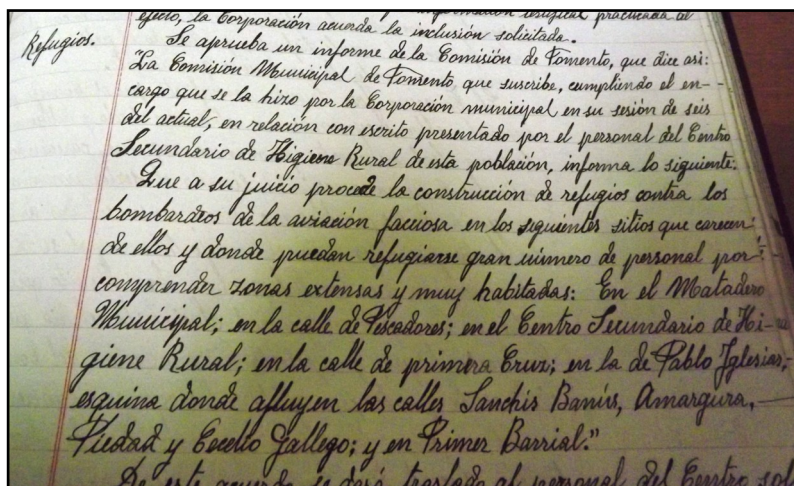 efecto, la Corporación acuerda la inclusión solicitada.
Refugios.
Se aprueba un informe de la Comisión de Fomento, que dice así:
"La Comisión Municipal de Fomento que suscribe, cumpliendo el en-
cargo que se la hizo por la Corporación municipal en su sesión de seis
del actual, en relación con escrito presentado por el personal del Centro
Secundario de Higiene Rural de esta población, informa lo siguiente:
Que a su juicio procede la construcción de refugios contra los
bombardeos de la aviación facciosa en los siguientes sitios que carecen
de ellos y donde puedan refugiarse gran número de personal por
comprender zonas extensas y muy habitadas: En el Matadero
Municipal; en la calle de Pescadores; en el Centro Secundario de Hi-
giene Rural; en la calle de primera Cruz; en la de Pablo Iglesias,
esquina donde afluyen las calles Sanchis Banús, Amargura,
Piedad y Eocelio Gallego; y en Primer Barrial."
De este acuerdo se dará traslado al personal del Centro